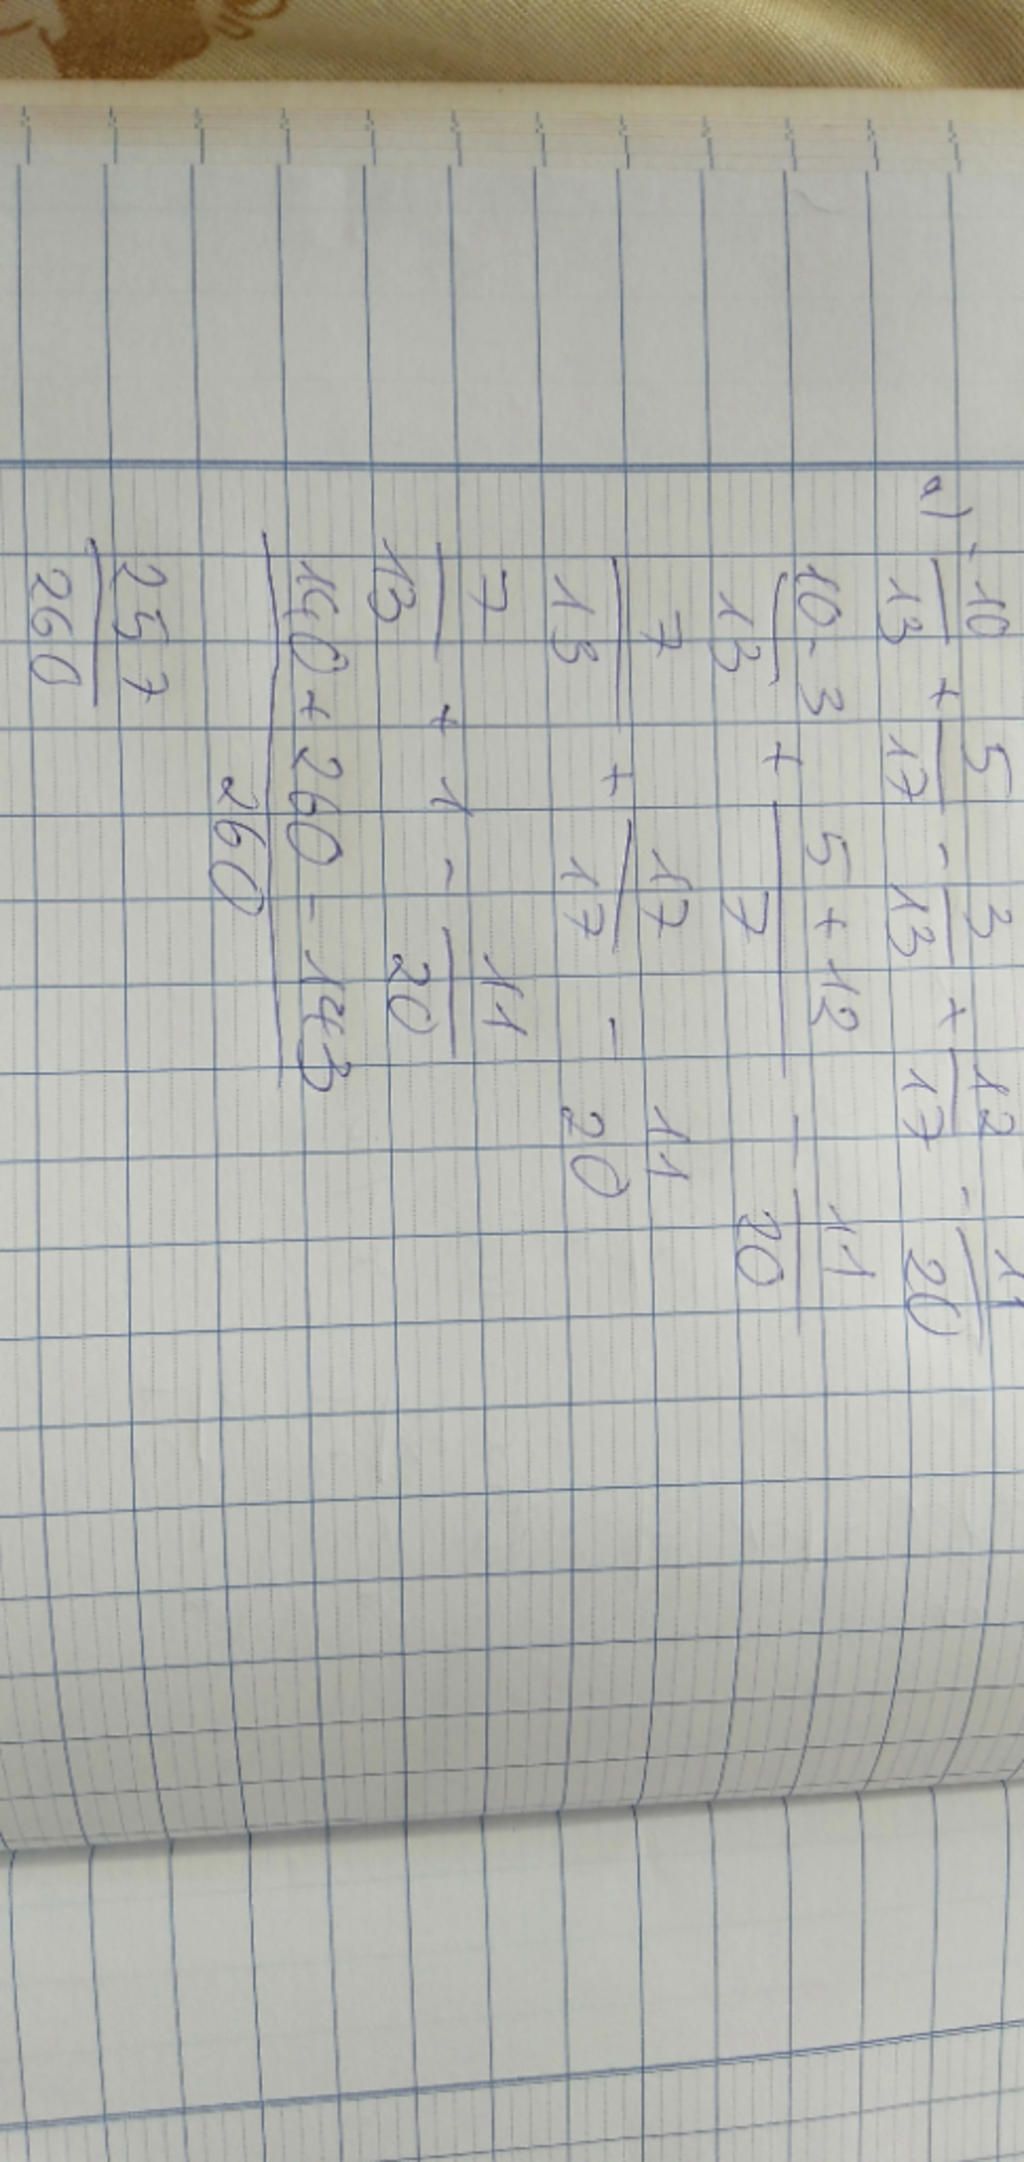 a) -10/13 + 5/17 - 3/13 + 12/17 - 11/20
10-3/13 + 5+12/7 - 11/20
7/13 + 17/17 - 11/20
7/13 + 1 - 11/20
140+260-143/260
257/260